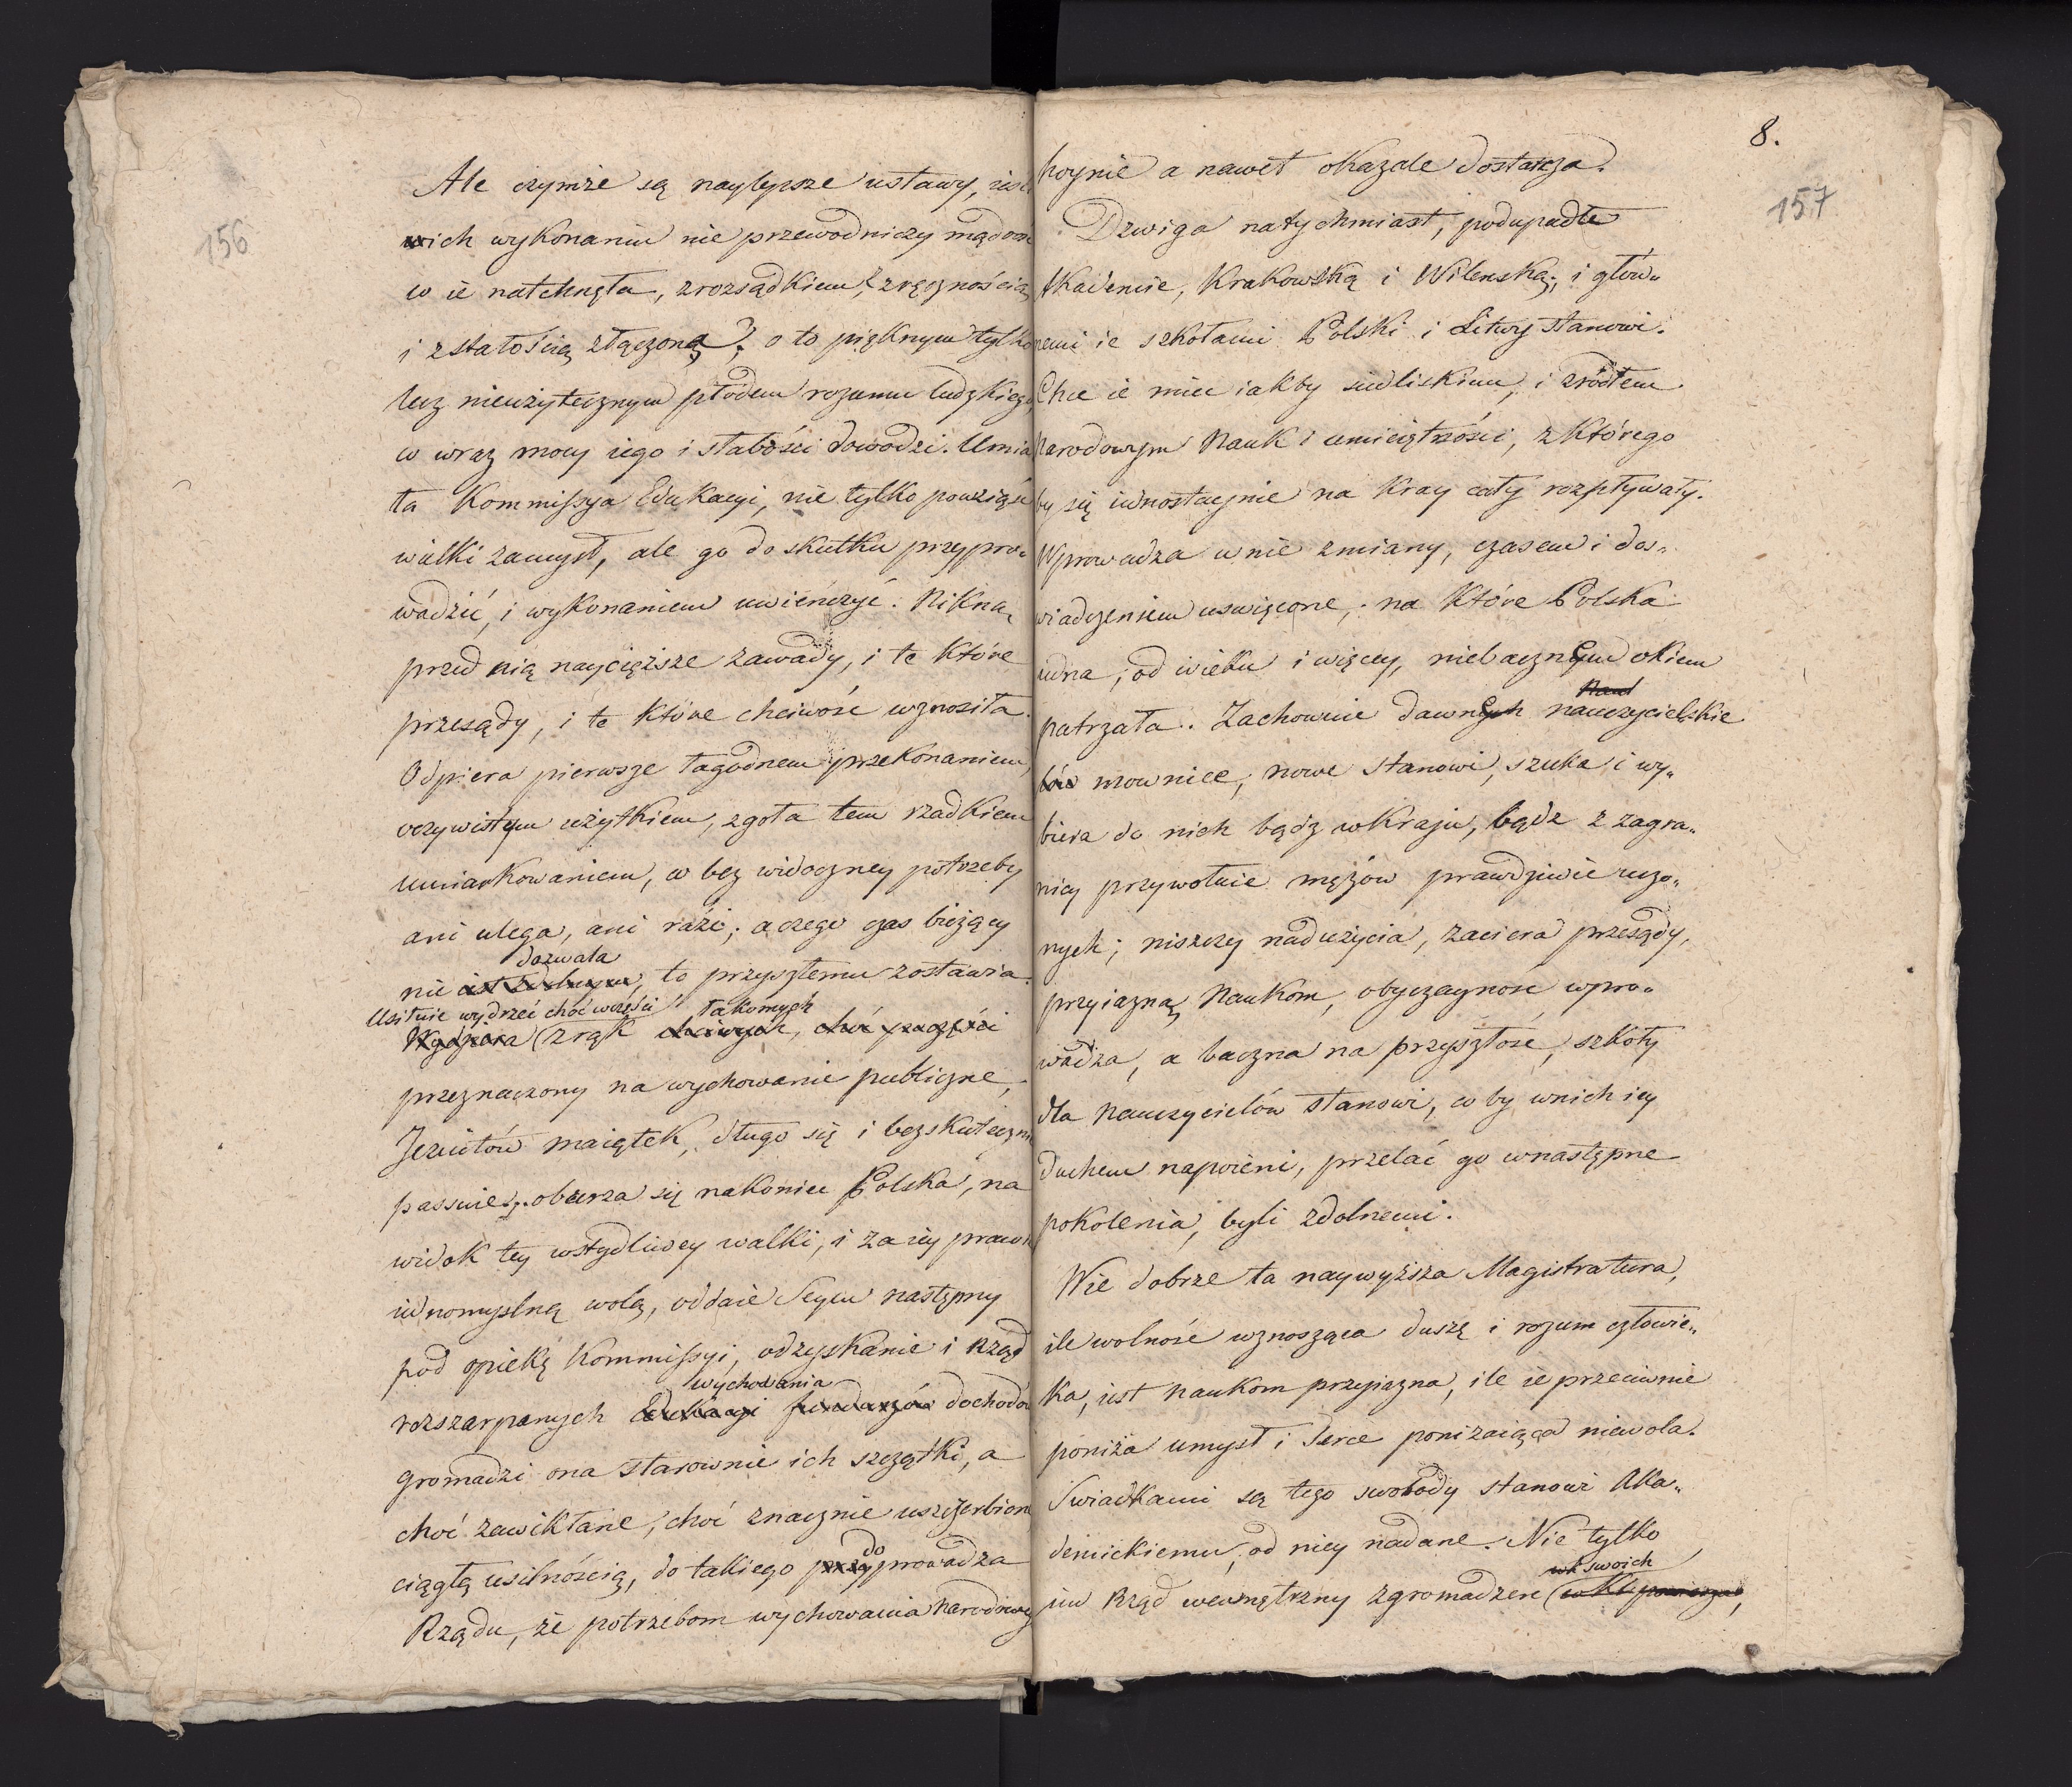 156
Ale czymże są naylepsze ustawy, ieśli
w ich wykonaniu nie przewodniczy mądrość
co ie natchnęła, z rozsądkiem, zręcznością
i z stałością złączoną? o to pięknym tylko
lecz nieużytecznym płodem rozumu ludzkiego,
co wraz mocy iego i słabości dowodzi. Umia
ła Kommissya Edukacyi, nie tylko powziąść
wielki zamysł, ale go do skutku przypro„
wadzić, i wykonaniem uwieńczyć. Nikną
przed nią naycięższe zawady, i te które
przesądy, i te które chciwość wznosiła.
Odpiera pierwsze łagodnem przekonaniem,
oczywistym użytkiem, zgoła tem rzadkiem
umiarkowaniem, co bez widoczney potrzeby
ani ulega, ani razi; a czego czas bieżący
dozwala
nie to przyszłemu zostawia.
Usiłuie wydrzeć choć w części łakomych
Wydziera z rąk chciwych, choć po części
przeznaczony na wychowanie publiczne,
Jezuitów maiątek, długo się i bezskutecznie
passuie; oburza się nakoniec Polska, na
widok tey wstydliwey walki, i za iey prawie
iednomyślną wolą, oddaie Seym następny
pod opiekę Kommissyi, odzyskanie i Rząd
wychowania
rozszarpanych Edukacyi funduszów dochodów
gromadzi ona starownie ich szczątki, a
choć zawikłane, choć znacznie uszczerbione
do
ciągłą usilnością, do takiego przyprowadza
Rządu, że potrzebom wychowania Narodowego
8.
157
hoynie a nawet okazale dostarcza.
Dzwiga natychmiast, podupadłe
Akademie, Krakowską i Wilenską; i głów„
nemi ie szkołami Polski i Litwy stanowi.
Chce ie miec iakby siedliskiem, i zródłem
Narodowym Nauk i umieiętności, z którego
by się iednostaynie na Kray cały rozpływały.
Wprowadza w nie zmiany, czasem i dos„
wiadczeniem uswięcone, na które Polska
iedna, od wieku i więcey, niebacznym okiem
patrzała. Zachowuie dawnych nauczycielskie
mownice, nowe stanowi, szuka i wy„
biera do nich bądz w Kraju, bądz z zagra„
nicy przywołuie mężów prawdziwie uczo„
nych; niszczy nadużycia, zaciera przesądy,
przyiazną Naukom, obyczayność wpro„
wadza, a baczna na przyszłość, szkoły
dla Nauczycielów stanowi, co by w nich iey
duchem napoieni, przelać go w następne
pokolenia, byli zdolnemi.
Wie dobrze ta naywyższa Magistratura,
ile wolność wznosząca duszę i rozum człowie„
ka, iest Naukom przyiazna, ile ie przeciwnie
poniża umysł i serce poniżaiąca niewola.
Swiadkami są tego swobody stanowi Aka„
demickiemu, od niey nadane. Nie tylko
w swoich
im Rząd wewnętrzny zgromadzen